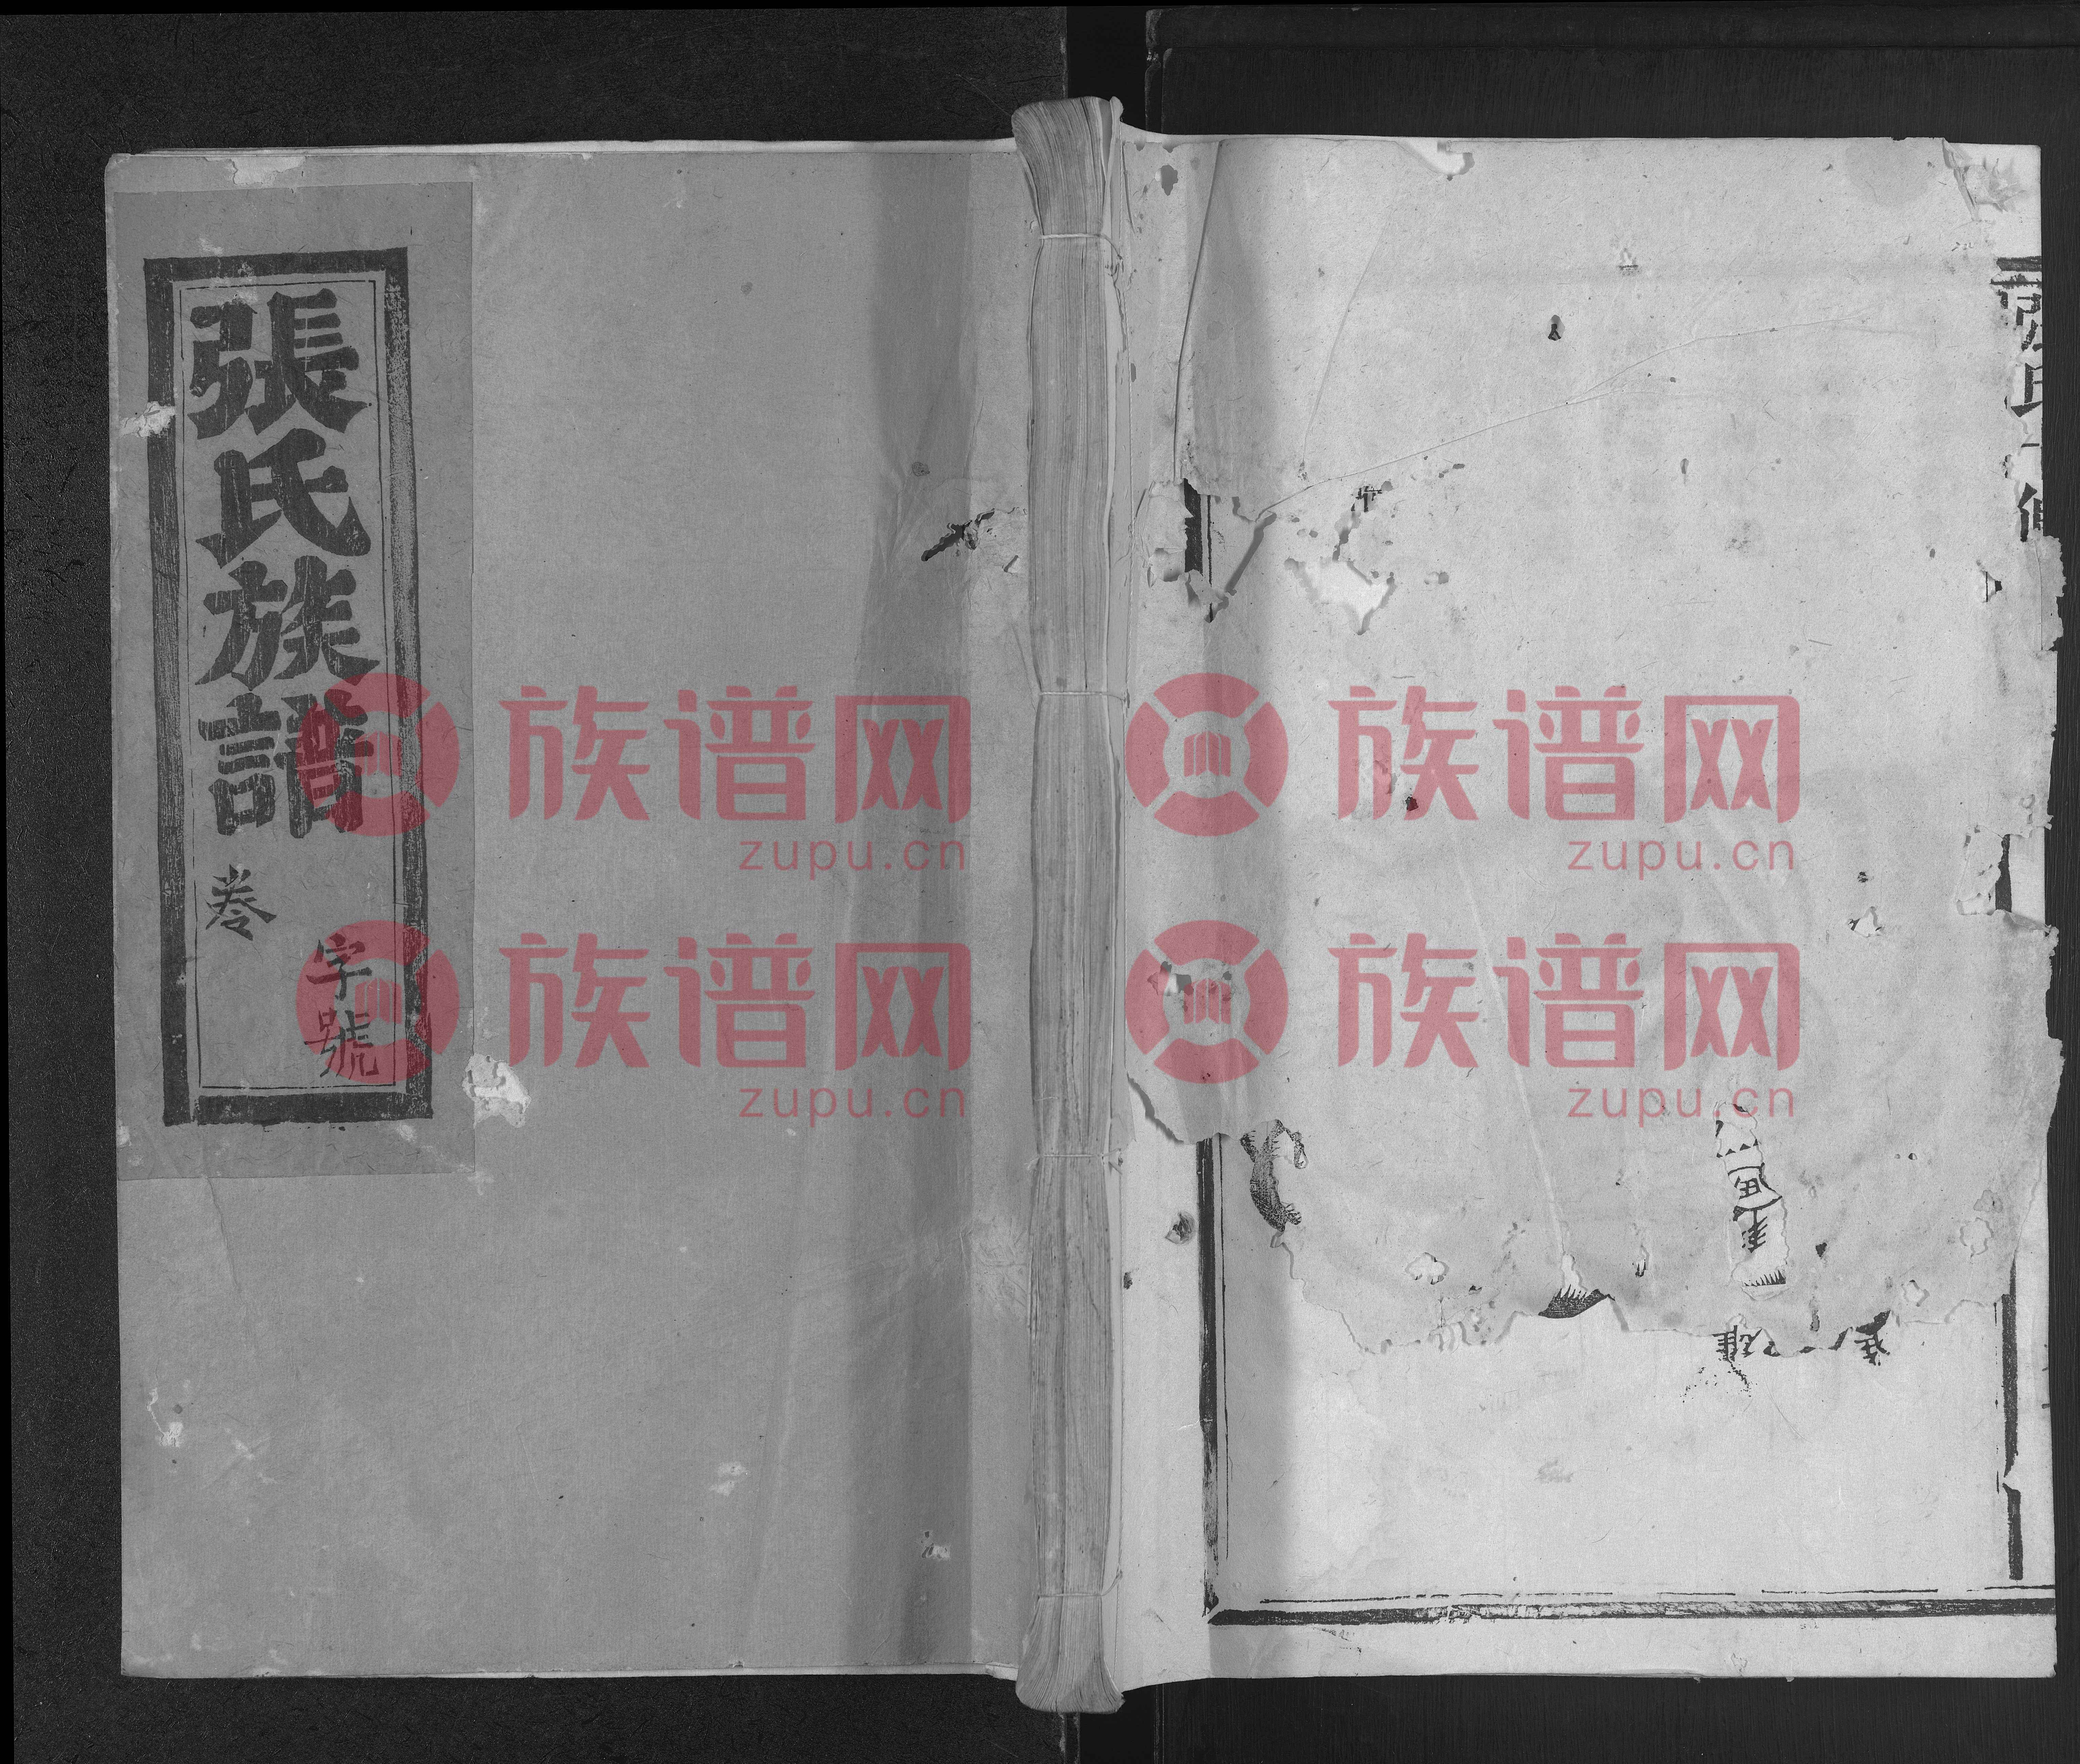 張氏族譜
卷
字號
張氏
族谱网
zupu.cn
族谱网
zupu.cn
族谱网
zupu.cn
族谱网
zupu.cn